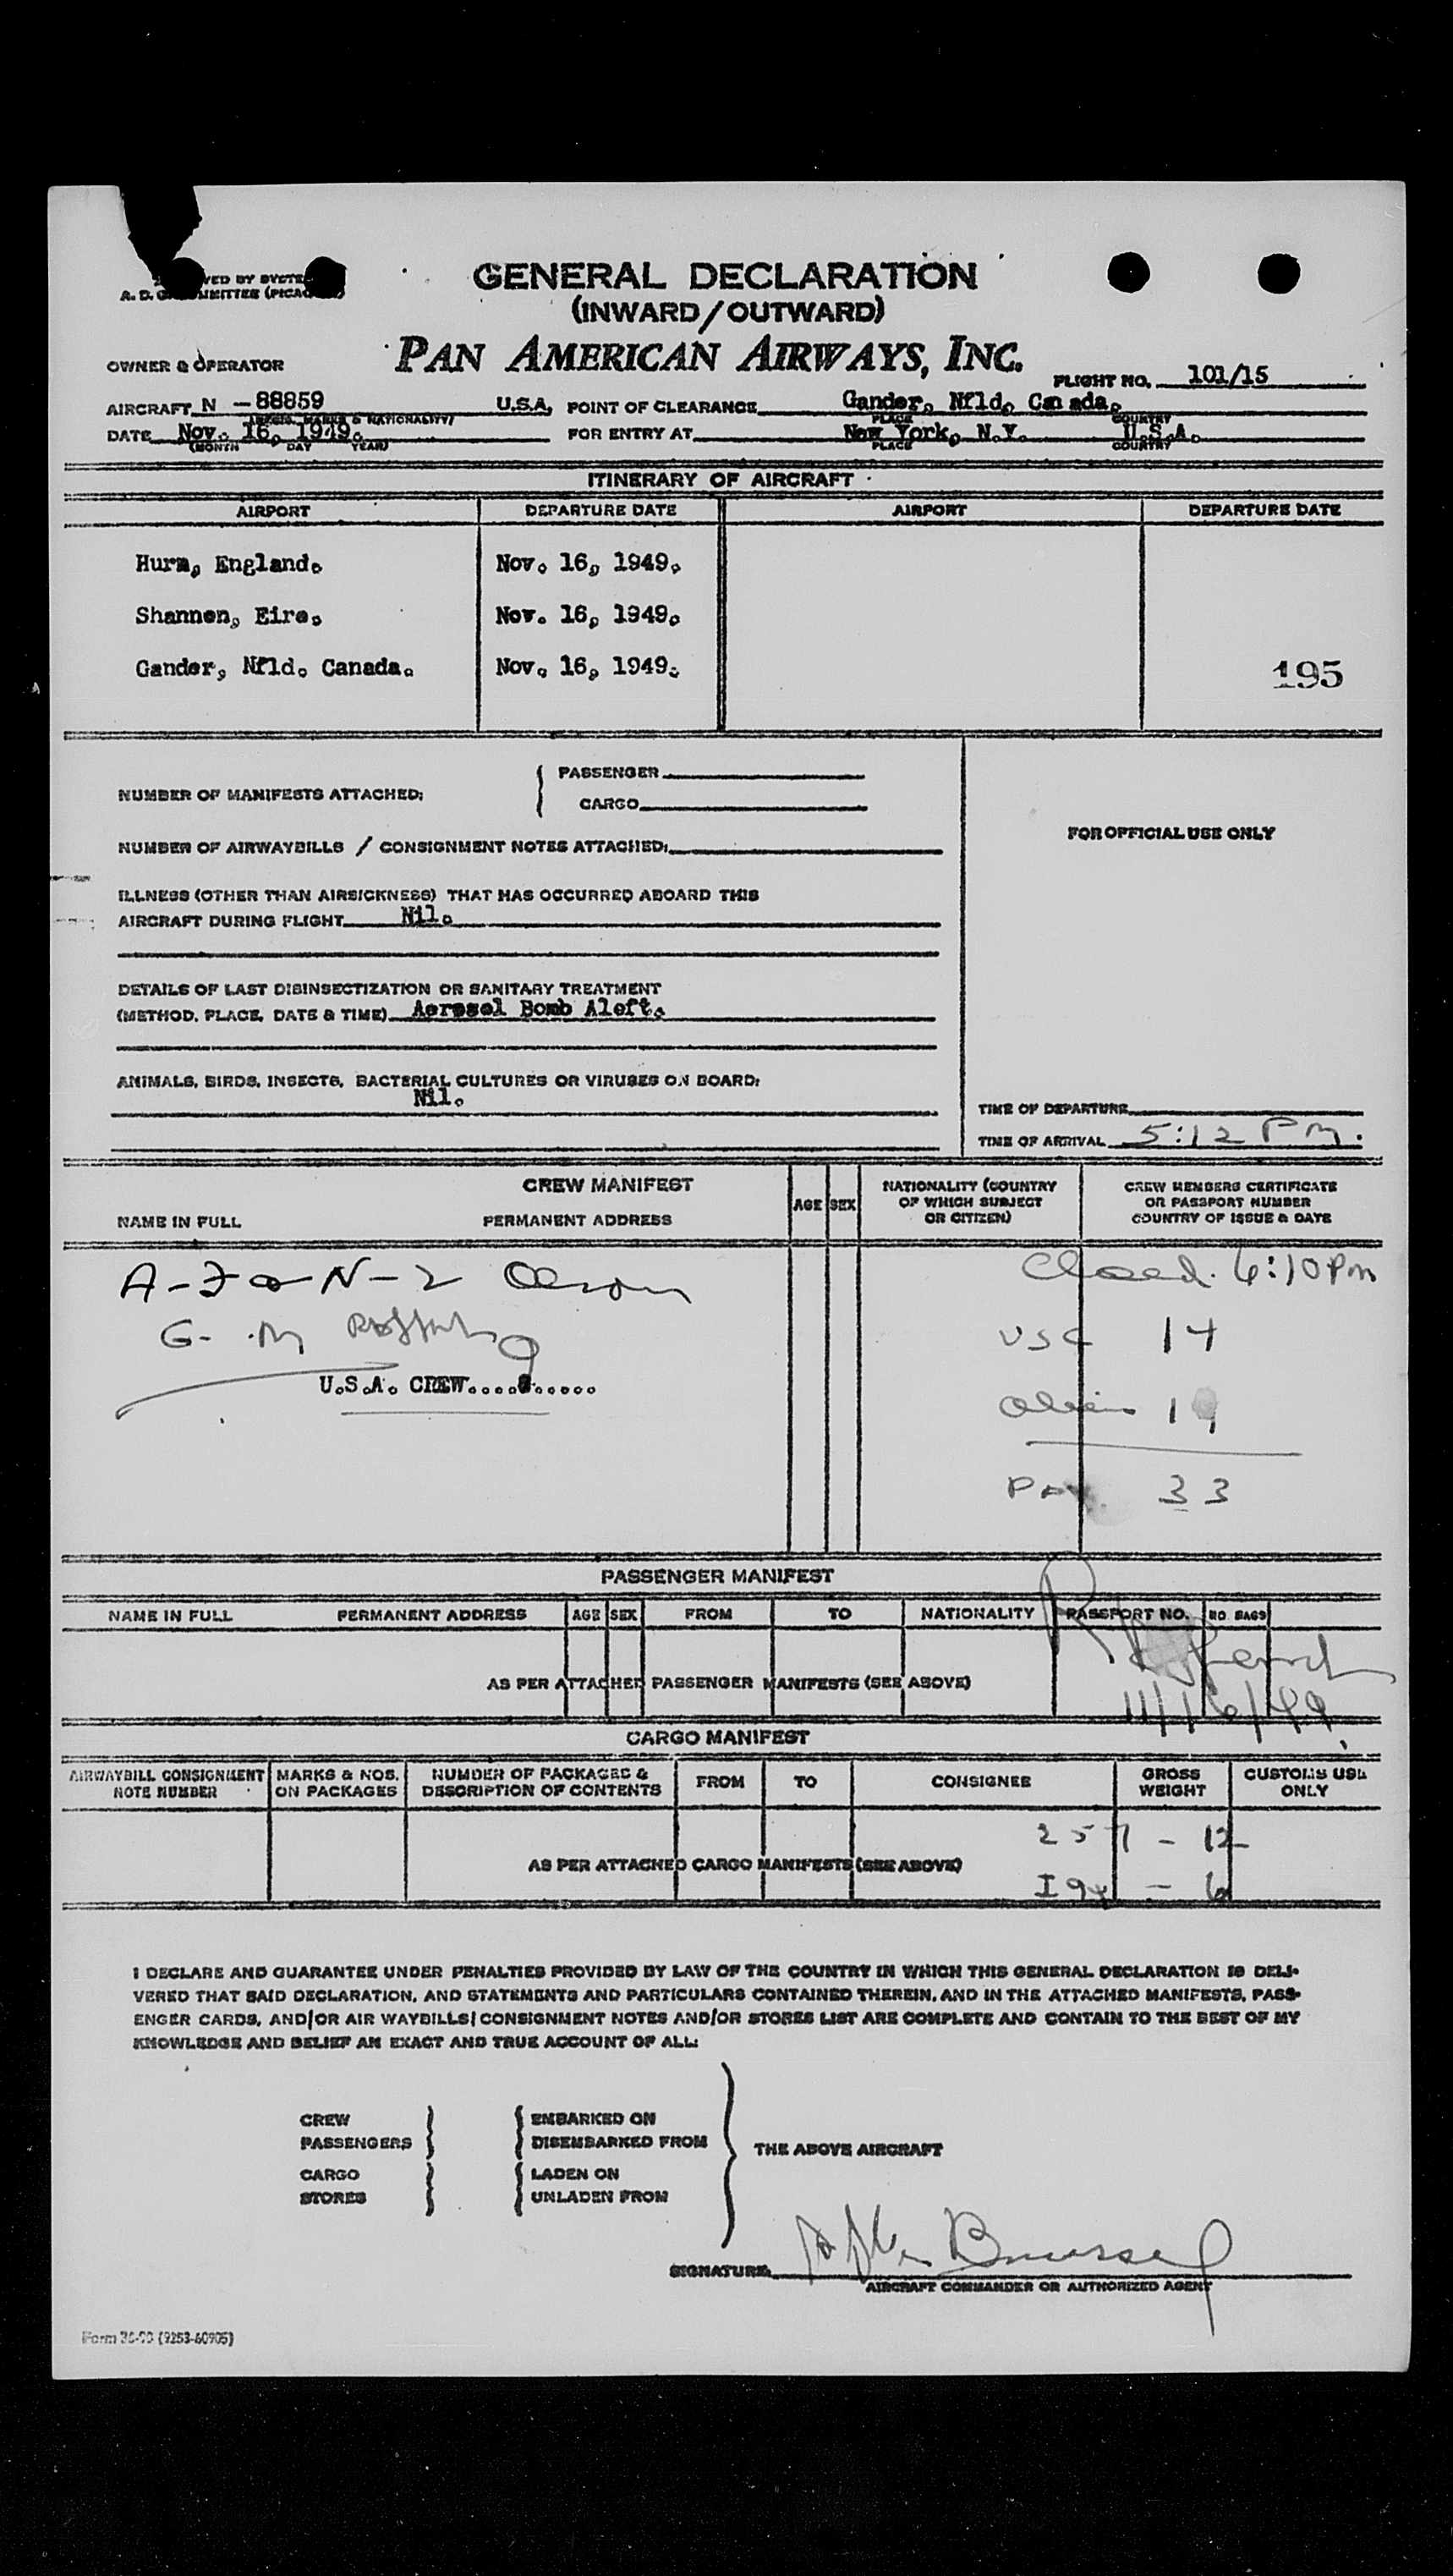 GENERAL DECLARATION
(INWARD/OUTWARD)
PAN AMERICAN AIRWAYS, INC.
OWNER & OPERATOR
FLIGHT NO. 101/15
AIRCRAFT N - 88859 U.S.A. POINT OF CLEARANCE Gander, Nfld, Canada.
(REGIS. MARKS & NATIONALITY) PLACE COUNTRY
DATE Nov. 16, 1949. FOR ENTRY AT New York, N.Y. U.S.A.
(MONTH DAY YEAR) PLACE COUNTRY
ITINERARY OF AIRCRAFT
AIRPORT DEPARTURE DATE AIRPORT DEPARTURE DATE
Hurn, England. Nov. 16, 1949.
Shannon, Eire. Nov. 16, 1949.
Gander, Nfld. Canada. Nov. 16, 1949.
195
NUMBER OF MANIFESTS ATTACHED: { PASSENGER
CARGO
NUMBER OF AIRWAYBILLS / CONSIGNMENT NOTES ATTACHED:
FOR OFFICIAL USE ONLY
ILLNESS (OTHER THAN AIRSICKNESS) THAT HAS OCCURRED ABOARD THIS
AIRCRAFT DURING FLIGHT Nil.
DETAILS OF LAST DISINSECTIZATION OR SANITARY TREATMENT
(METHOD, PLACE, DATE & TIME) Aerosol Bomb Aloft.
ANIMALS, BIRDS, INSECTS, BACTERIAL CULTURES OR VIRUSES ON BOARD:
Nil.
TIME OF DEPARTURE
TIME OF ARRIVAL 5:12 PM.
CREW MANIFEST
NAME IN FULL PERMANENT ADDRESS AGE SEX NATIONALITY (COUNTRY OF WHICH SUBJECT OR CITIZEN) CREW MEMBERS CERTIFICATE OR PASSPORT NUMBER COUNTRY OF ISSUE & DATE
Closed. 6:10 Pm
G. M
USC 14
U.S.A. CREW....8.....
Alien 19
Pax. 33
PASSENGER MANIFEST
NAME IN FULL PERMANENT ADDRESS AGE SEX FROM TO NATIONALITY PASSPORT NO. NO. BAGS
AS PER ATTACHED PASSENGER MANIFESTS (SEE ABOVE)
11/16/49
CARGO MANIFEST
AIRWAYBILL CONSIGNMENT NOTE NUMBER MARKS & NOS. ON PACKAGES NUMBER OF PACKAGES & DESCRIPTION OF CONTENTS FROM TO CONSIGNEE GROSS WEIGHT CUSTOMS USE ONLY
257 - 12
AS PER ATTACHED CARGO MANIFESTS (SEE ABOVE)
- 6
I DECLARE AND GUARANTEE UNDER PENALTIES PROVIDED BY LAW OF THE COUNTRY IN WHICH THIS GENERAL DECLARATION IS DELI-
VERED THAT SAID DECLARATION, AND STATEMENTS AND PARTICULARS CONTAINED THEREIN, AND IN THE ATTACHED MANIFESTS, PASS-
ENGER CARDS, AND/OR AIR WAYBILLS/CONSIGNMENT NOTES AND/OR STORES LIST ARE COMPLETE AND CONTAIN TO THE BEST OF MY
KNOWLEDGE AND BELIEF AN EXACT AND TRUE ACCOUNT OF ALL:
CREW EMBARKED ON
PASSENGERS DISEMBARKED FROM
THE ABOVE AIRCRAFT
CARGO LADEN ON
STORES UNLADEN FROM
SIGNATURE
AIRCRAFT COMMANDER OR AUTHORIZED AGENT
Form (9253-60905)